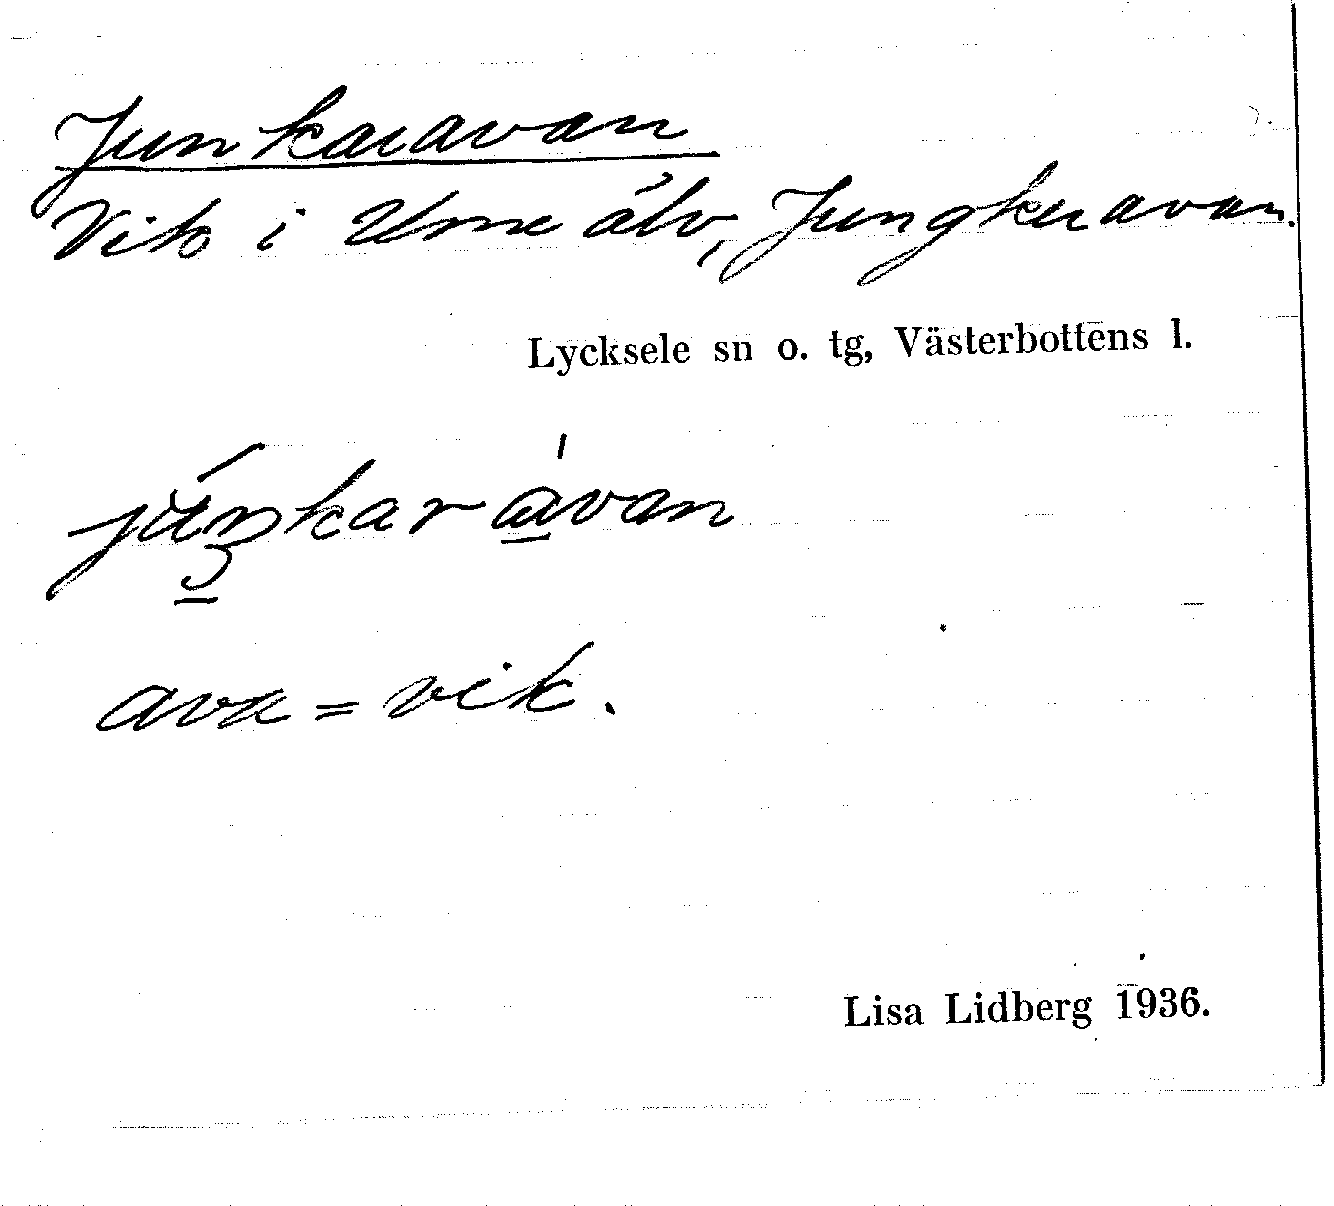 Junkaravan
Vik i Ume älv, Jungkeravan.
Lycksele sn o. tg, Västerbottens l.
ava = vik.
Lisa Lidberg 1936.